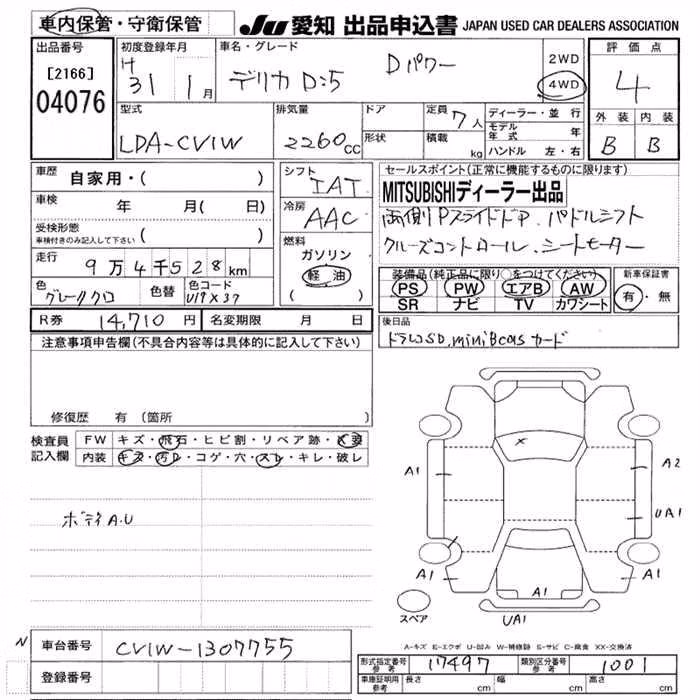 車内保管・守衛保管
JU 愛知 出品申込書 JAPAN USED CAR DEALERS ASSOCIATION
出品番号 初度登録年月 車名・グレード 評価点
[2166] H 31年 1月 デリカD:5 Dパワー 2WD 4
04076 4WD
型式 排気量 ドア 定員 7人 ディーラー・並行 外装 内装
LDA-CV1W 2260cc 形状 積載 kg モデル年式 年 B B
ハンドル 左・右
車歴 自家用・( ) シフト IAT セールスポイント(正常に機能するものに限ります)
車検 年 月( 日) 冷房 AAC MITSUBISHIディーラー出品
受検形態 車検付きのみ記入して下さい ( ) 両側Pスライドドア、パドルシフト
走行 9万4千528km 燃料 ガソリン クルーズコントロール、シートモーター
軽油 ( )
色 グレー/クロ 色替 色コード U17X37
装備品(純正品に限り○をつけてください) 新車保証書
PS PW エアB AW 有・無
SR ナビ TV カワシート
R券 14,710円 名変期限 月 日 後日品
注意事項申告欄(不具合内容等は具体的に記入して下さい) ドラレコSD,miniBcasカード
修復歴 有 (箇所
検査員記入欄 FW キズ・飛石・ヒビ割・リペア跡・X要
内装 キズ・汚レ・コゲ・穴・スレ・キレ・破レ
ボディA.U
A1 A2
UA1
A1 A1
A1
スペア UA1
A-キズ E-エクボ U-凹み W-補修跡 S-サビ C-腐食 XX-交換済
N 車台番号 CV1W-1307755
登録番号
形式指定番号 参考 17497 類別区分番号 参考 1001
車庫証明用 参考 長さ cm 幅 cm 高さ cm